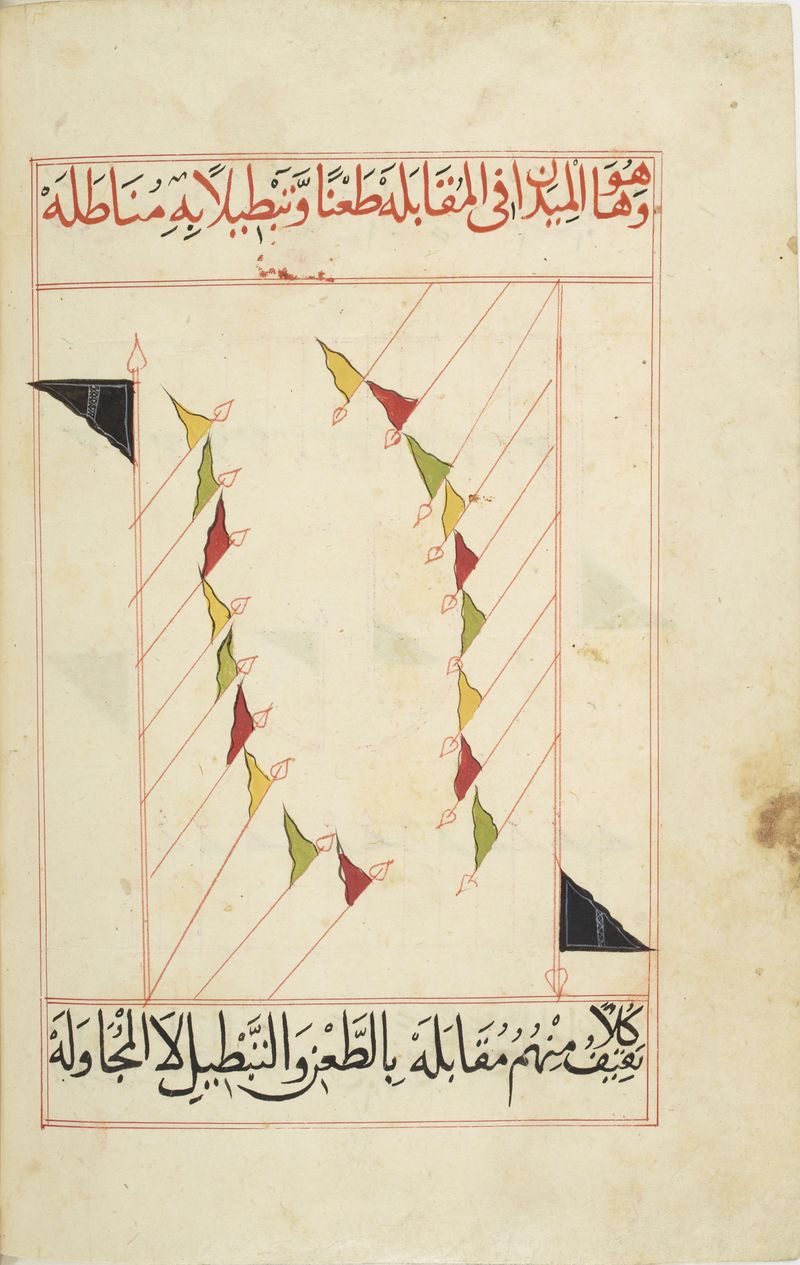 وَهَا هُوَ الْمِيدَان فى المُقَابَلَهْ طَعْنًا وَّتَبْطِيلًا بِهِ مُنَاطَلَهْ
كُلًا يَقِفُ مِنْهُمُ مُقَابَلَهْ بِالطَّعْنِ وَالتَّبْطِيلِ لَا الْمُجَاوَلَهْ